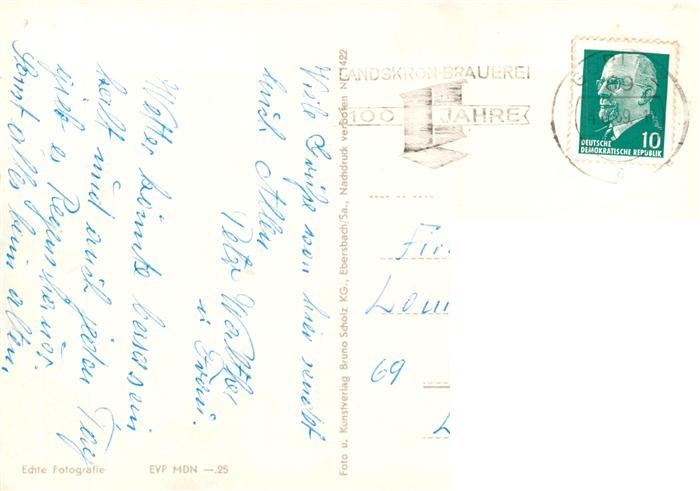 Viele Grüße von hier sendet
Euch Allen
Peter Walther
u. Frau.
Wetter könnte besser sein
kalt und auch jeden Tag
gibt es Regenschauer.
Sonst alles beim alten.
Echte Fotografie
EVP MDN —.25
Foto u. Kunstverlag Bruno Scholz KG., Ebersbach/Sa., Nachdruck verboten Nr. 1422
LANDSKRON-BRAUEREI
100 JAHRE
10
DEUTSCHE
DEMOKRATISCHE REPUBLIK
69